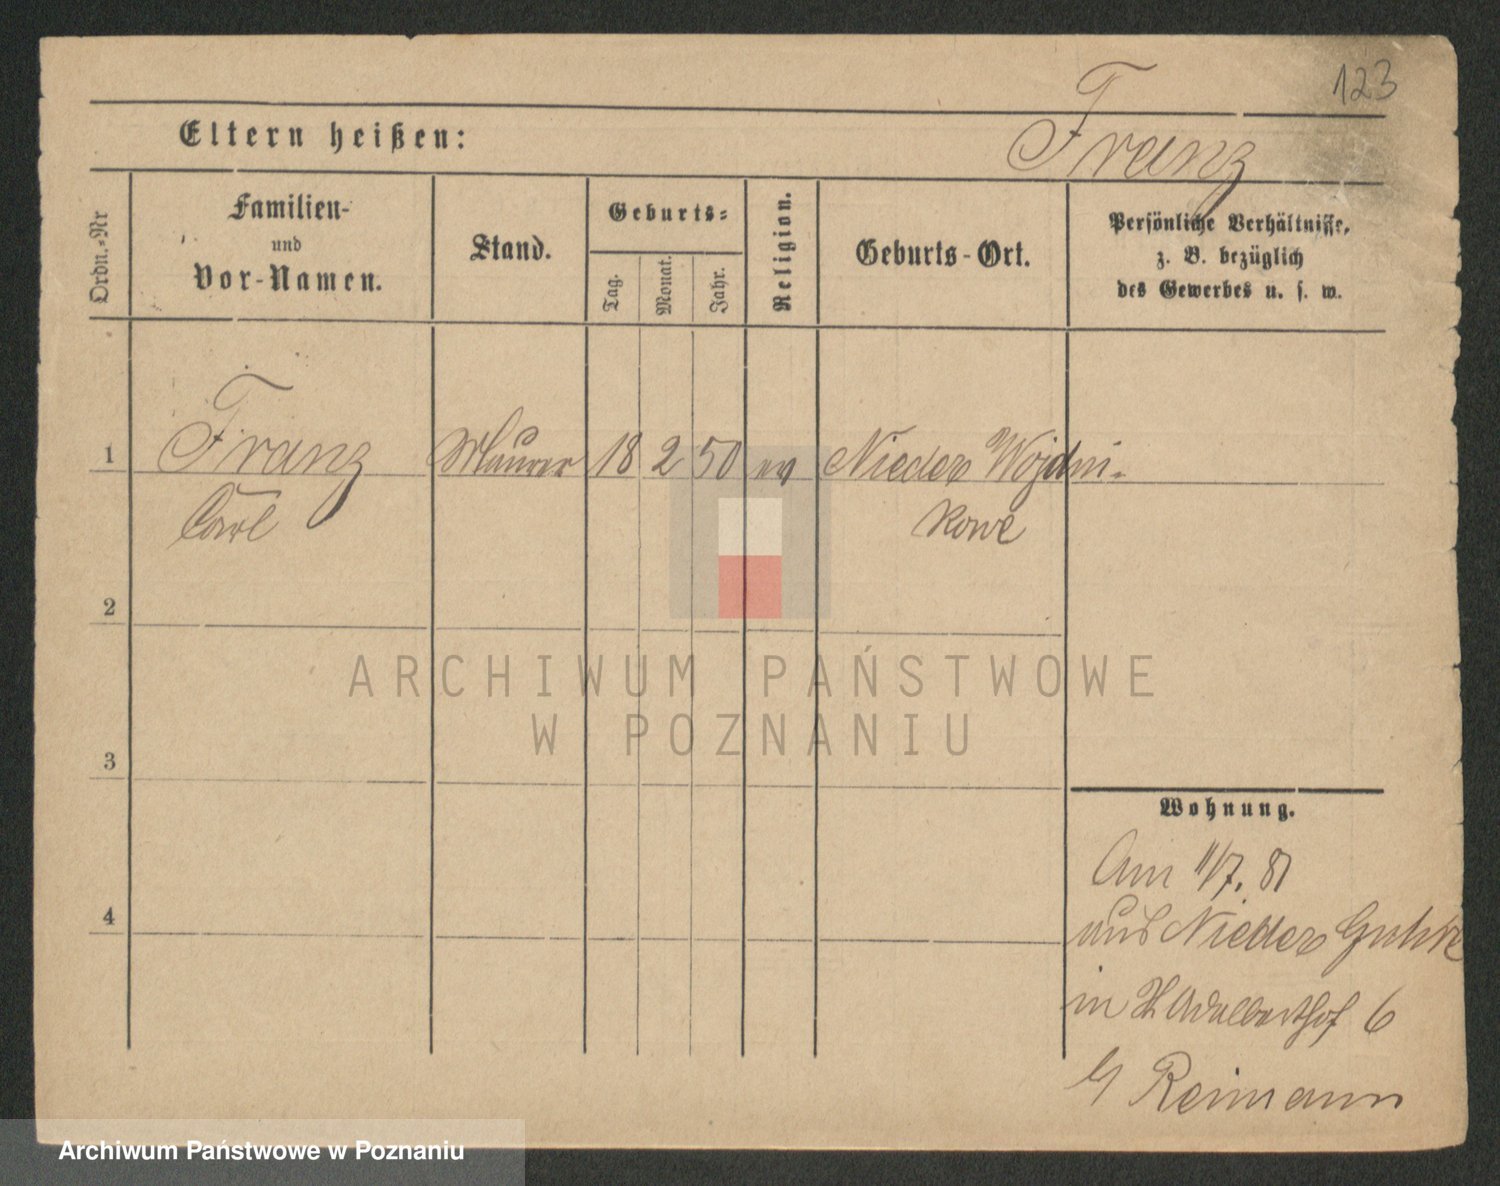 123
Eltern heißen:
Franz
Ordn.=Nr
Familien-
und
Vor-Namen.
Stand.
Geburts=
Tag.
Monat.
Jahr.
Religion.
Geburts-Ort.
Persönliche Verhältnisse,
z. B. bezüglich
des Gewerbes u. s. w.
1
Franz Maurer 18 2 50 ev Nieder Wojdni-
Carl kowe
2
ARCHIWUM PAŃSTWOWE
W POZNANIU
3
Wohnung.
Am 11/7. 81
4
aus Nieder
in Adalberthof 6
Reimann
Archiwum Państwowe w Poznaniu